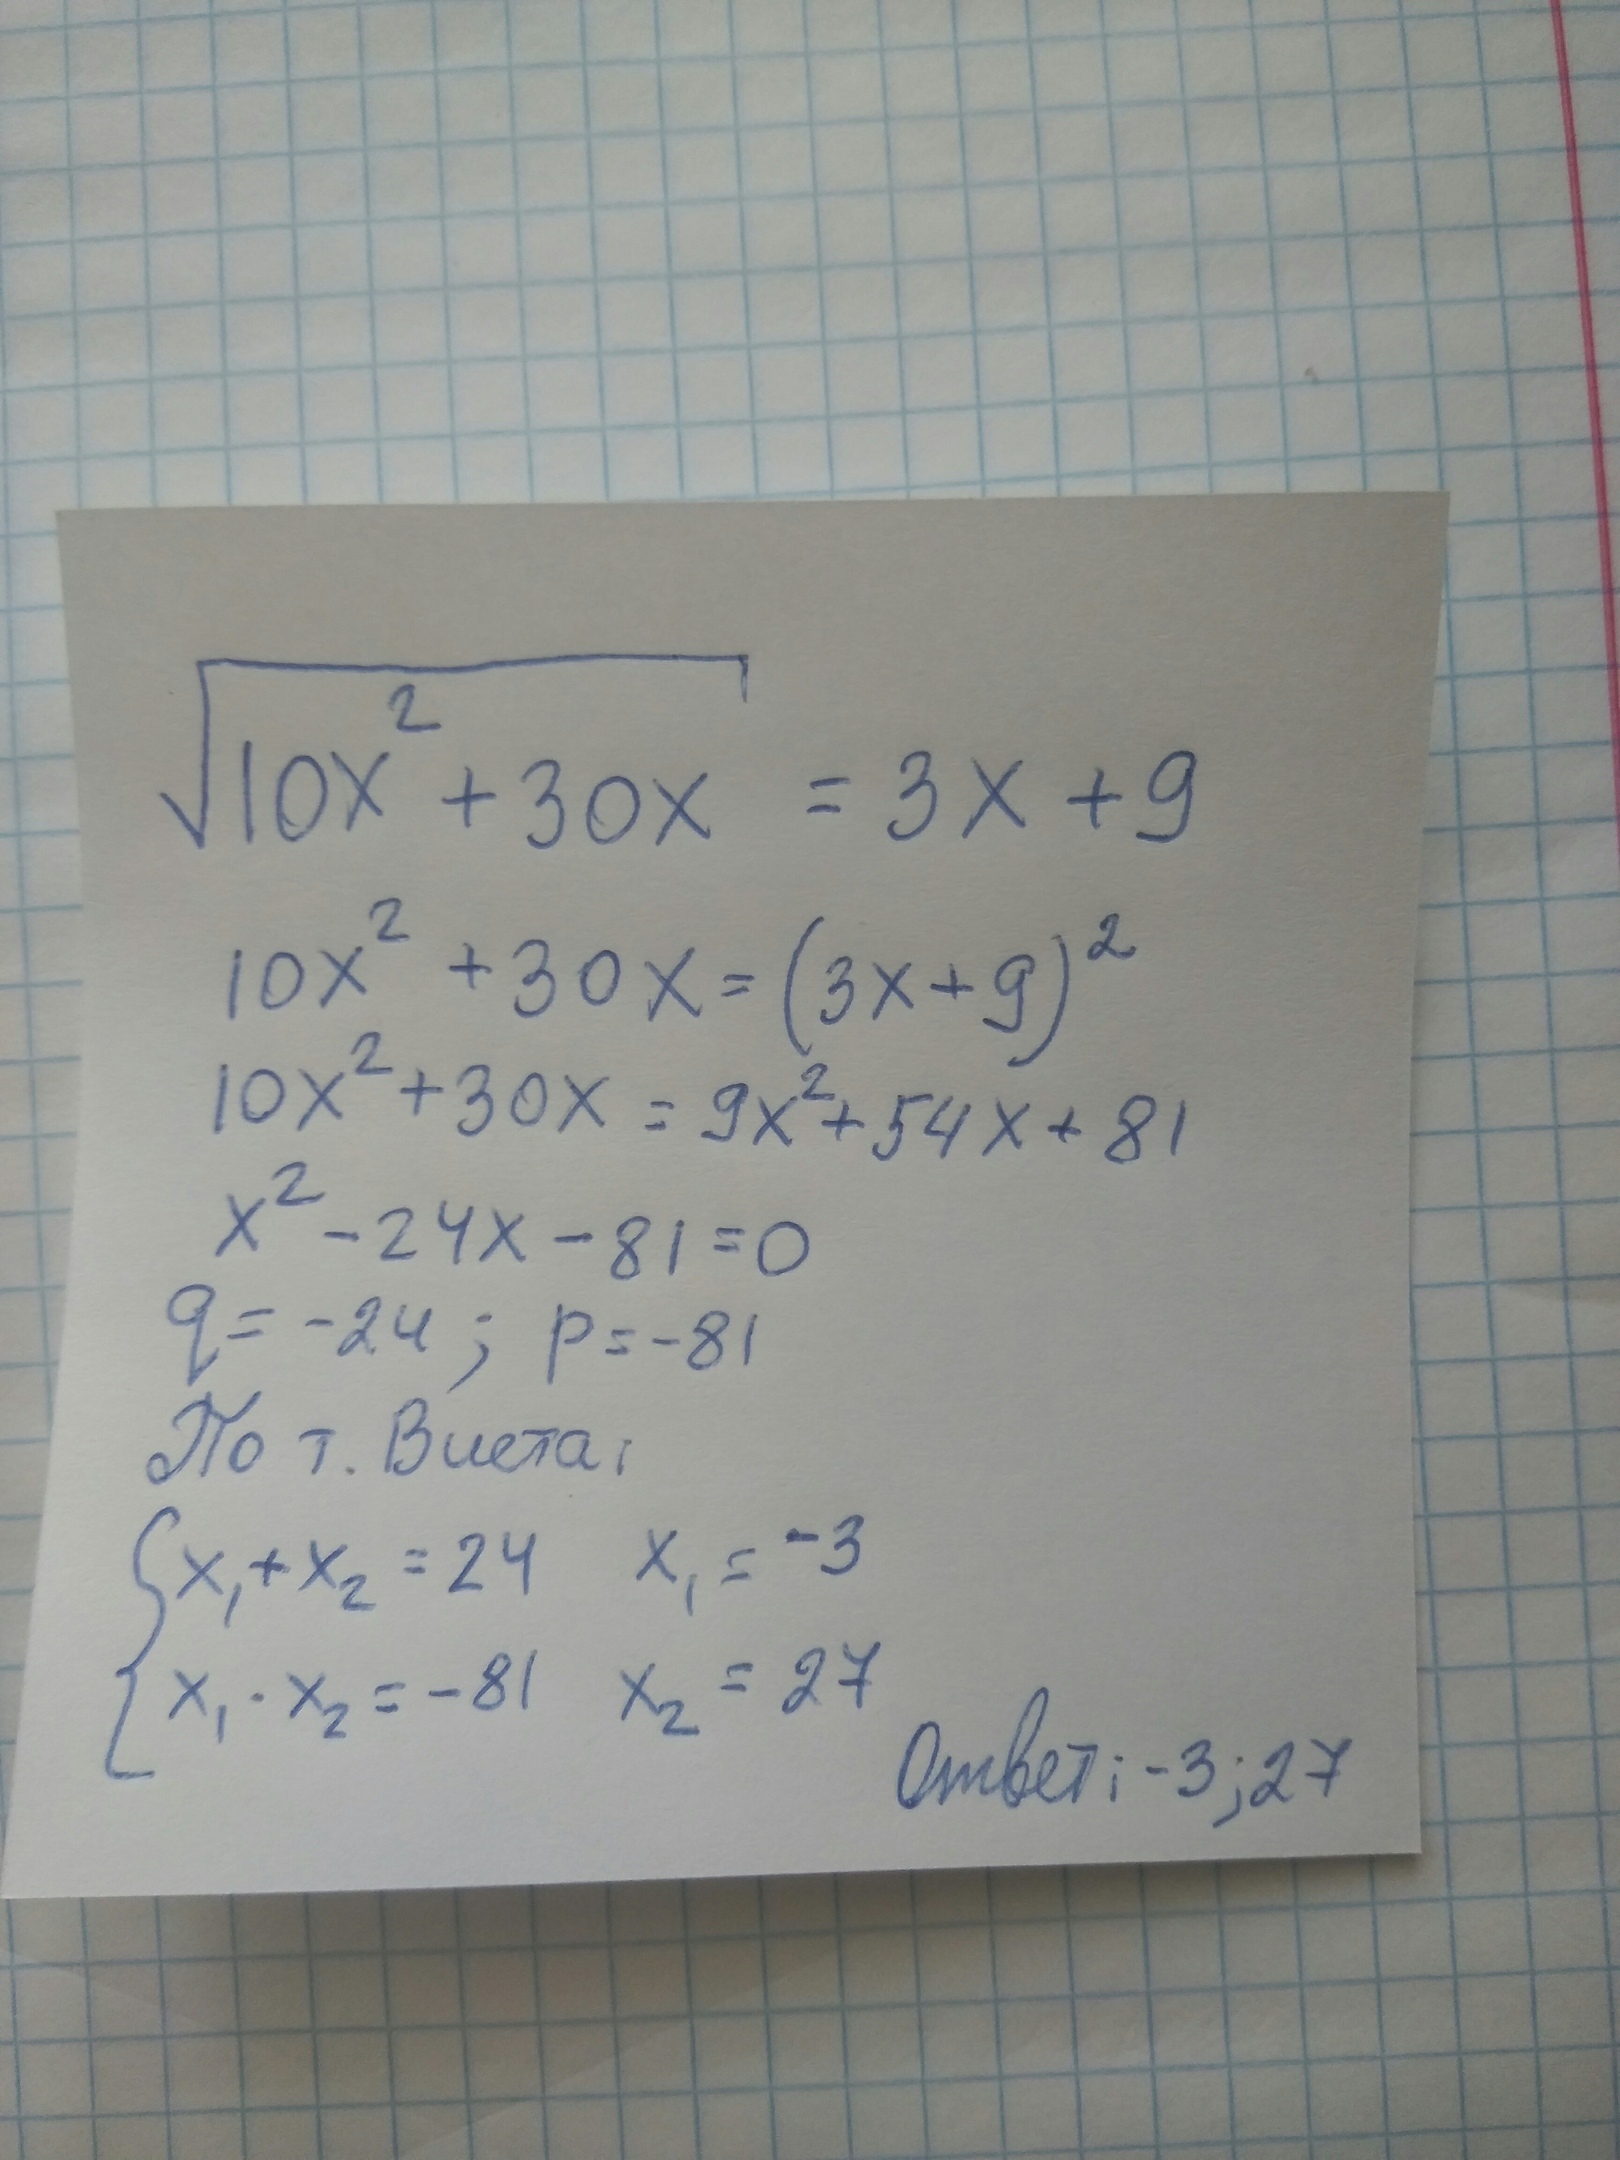 √10x² + 30x = 3x + 9
10x² + 30x = (3x + 9)²
10x² + 30x = 9x² + 54x + 81
x² - 24x - 81 = 0
q = -24 ; p = -81
По т. Виета:
x₁ + x₂ = 24 x₁ = -3
x₁ · x₂ = -81 x₂ = 27
Ответ: -3; 27